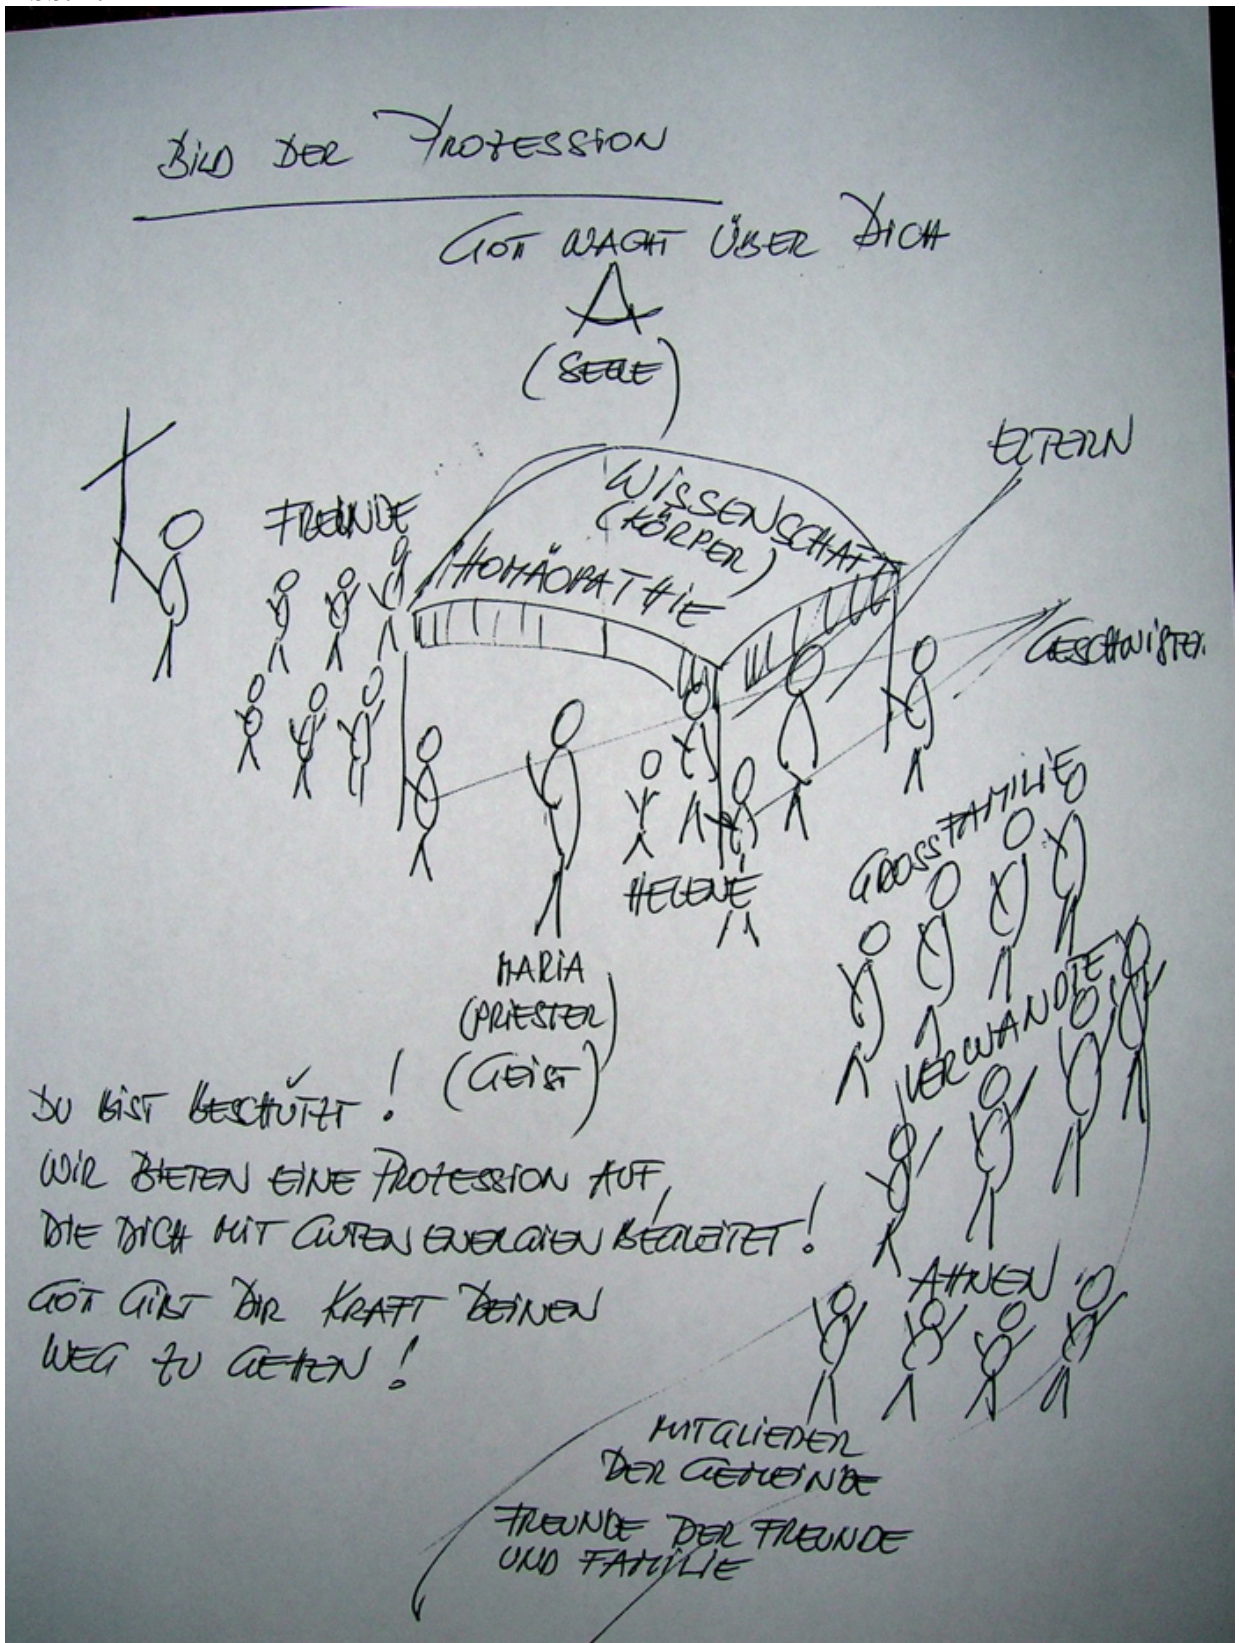 BILD DER PROZESSION
GOTT WACHT ÜBER DICH
(SEELE)
ELTERN
FREUNDE
WISSENSCHAFT
(KÖRPER)
HOMÖOPATHIE
GESCHWISTER
GROSSFAMILIE
HELENE
MARIA
(PRIESTER)
(GEIST)
VERWANDTE
DU BIST BESCHÜTZT!
WIR BIETEN EINE PROZESSION AUF,
DIE DICH MIT GUTEN ENERGIEN BEGLEITET!
GOTT GIBT DIR KRAFT DEINEN
WEG ZU GEHEN!
AHNEN
MITGLIEDER
DER GEMEINDE
FREUNDE DER FREUNDE
UND FAMILIE